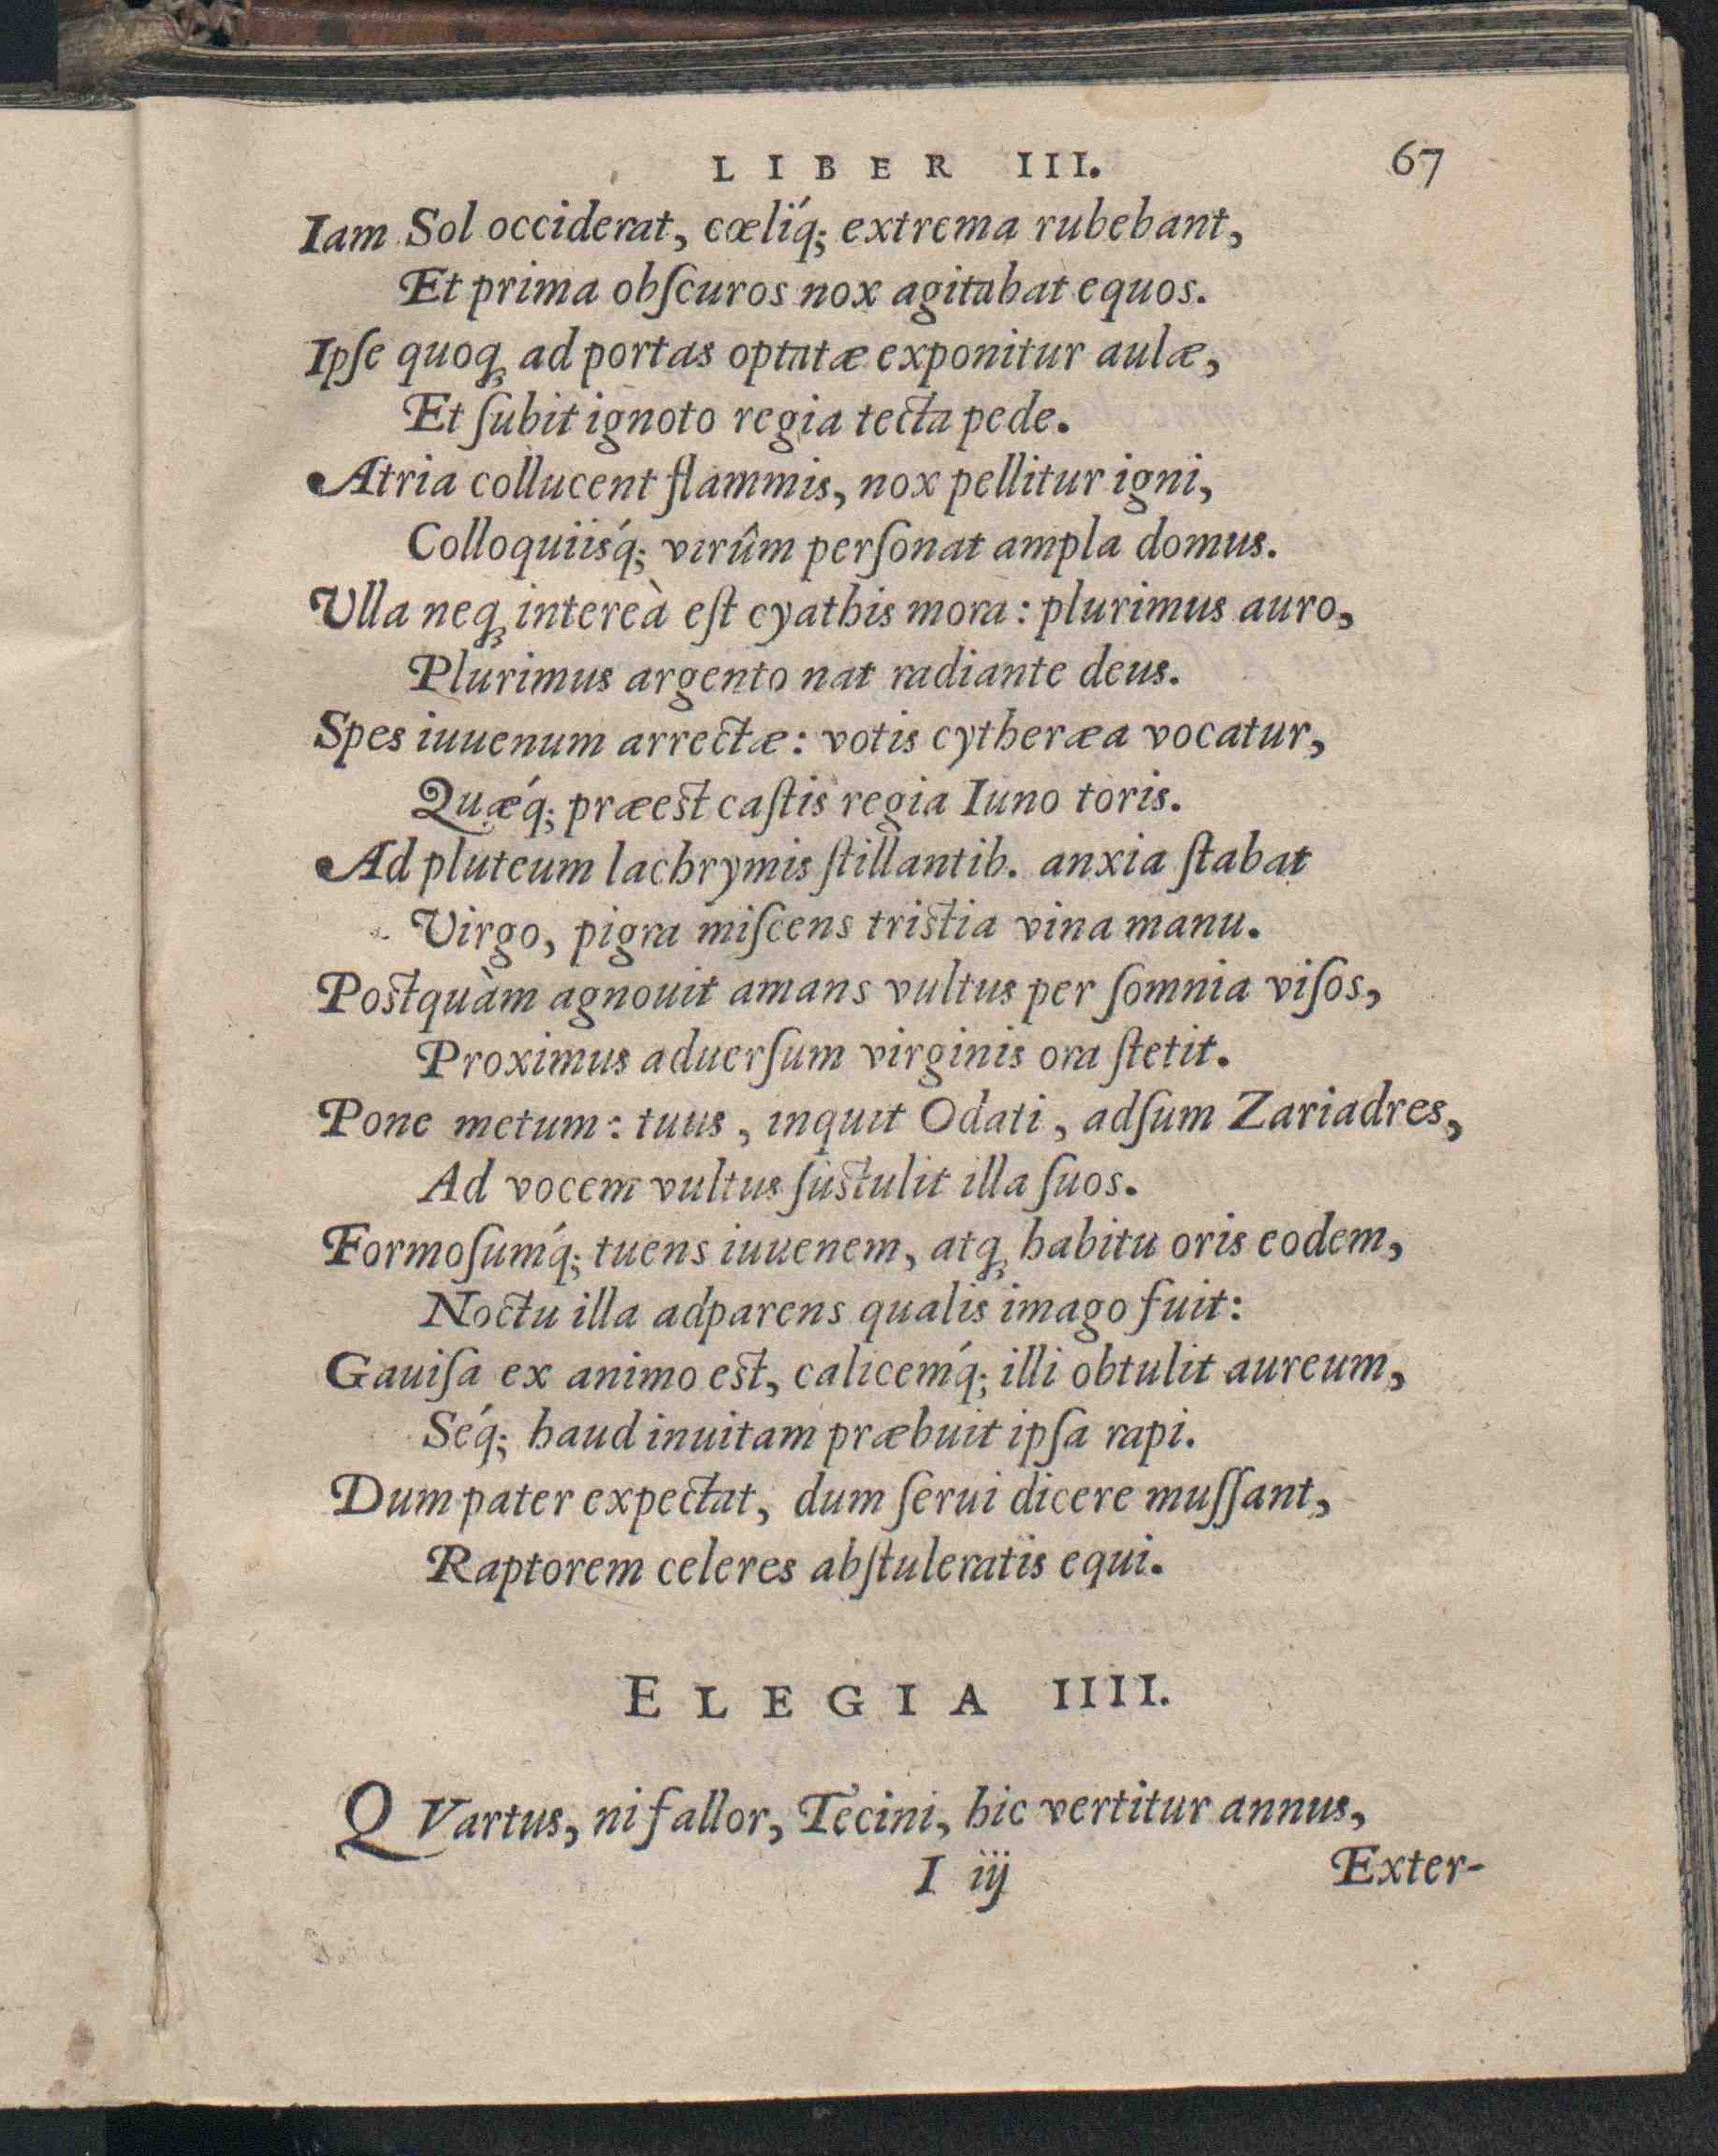 LIBER III. 67
Iam Sol occiderat, cœliq́; extrema rubebant,
Et prima obſcuros nox agitabat equos.
Ipſe quoq; ad portas optatæ exponitur aulæ,
Et ſubit ignoto regia tecta pede.
Atria collucent flammis, nox pellitur igni,
Colloquiisq́; virûm perſonat ampla domus.
Ulla neq; intereà eſt cyathis mora: plurimus auro,
Plurimus argento nat radiante deus.
Spes iuuenum arrectæ: votis cytheræa vocatur,
Quæq́; præest caſtis regia Iuno toris.
Ad pluteum lachrymis ſtillantib. anxia ſtabat
Virgo, pigra miſcens tristia vina manu.
Postquàm agnouit amans vultus per ſomnia viſos,
Proximus aduerſum virginis ora ſtetit.
Pone metum: tuus, inquit Odati, adſum Zariadres,
Ad vocem vultus ſustulit illa ſuos.
Formoſumq́; tuens iuuenem, atq; habitu oris eodem,
Noctu illa adparens qualis imago fuit:
Gauiſa ex animo est, calicemq́; illi obtulit aureum,
Séq; haud inuitam præbuit ipſa rapi.
Dum pater expectat, dum ſerui dicere muſſant,
Raptorem celeres abſtuleratis equi.
ELEGIA IIII.
QVartus, ni fallor, Tecini, hic vertitur annus,
I iij Exter-